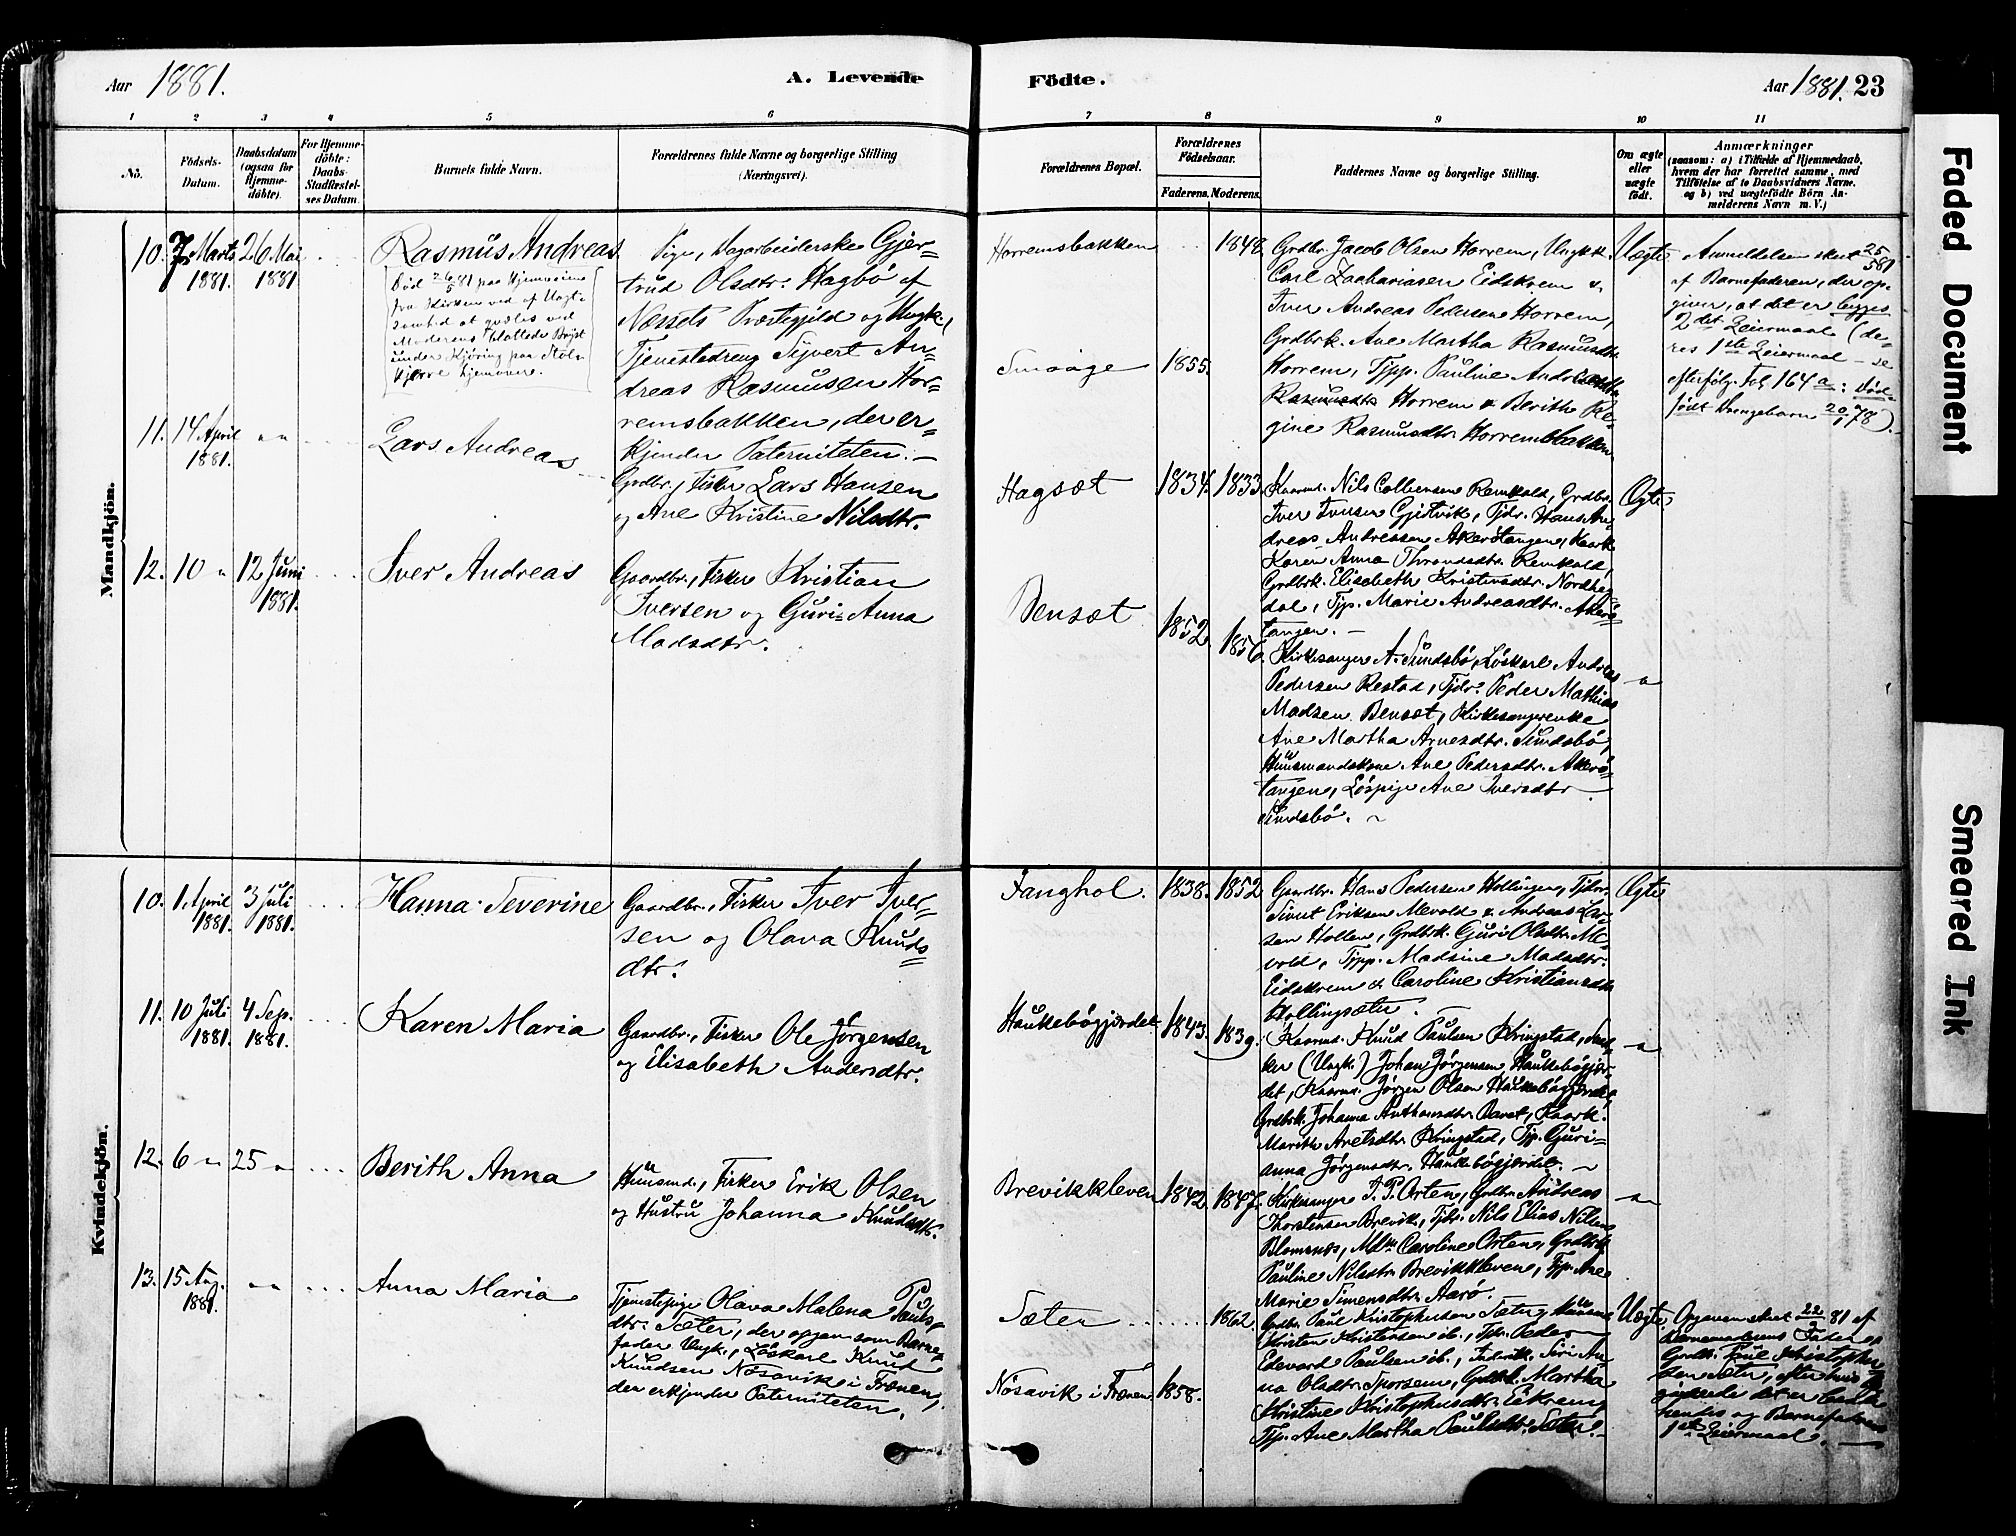 Aar 1881.
A. Levende
Födte.
Aar 1881. 23
1 2 3 4 5 6 7 8 9 10 11
No.
Födsels-
Datum.
Daabsdatum
(ogsaa for
Hjemme-
döbte).
For Hjemme-
döbte:
Daabs-
Stadfæstel-
ses Datum.
Barnets fulde Navn.
Forældrenes fulde Navne og borgerlige Stilling
(Næringsvei).
Forældrenes Bopæl.
Forældrenes
Födselsaar.
Faderens. Moderens.
Faddernes Navne og borgerlige Stilling.
Om ægte
eller
uægte
födt.
Anmærkninger
(saasom: a) i Tilfælde af Hjemmedaab,
hvem der har forrettet samme, med
Tilföielse af to Daabsvidners Navne,
og b) ved uægtefödte Börn An-
melderens Navn m. V.)
Mandkjön.
10. 7. Marts
1881.
26 Mai
1881
Rasmus Andreas
Død 26/5 81 paa Hjemveien
fra Kirken ved af Uagt-
somhed at qvæles ved
Moderens blottede Bryst
under Kjøring paa Stol-
kjærre hjemover.
Pige, Dagarbeiderske Gjer-
trud Olsdtr. Hagbö af
Næssets Præstegjeld og Ungk.,
Tjenestedreng Sivert An-
dreas Rasmusen Hor-
remsbakken, der er-
kjender Paterniteten. -
Horremsbakken
Smaage
1848.
1855.
Grdbr. Jacob Olsen Horrem, Ungk.
Carl Zachariasen Eidskrem &
Iver Andreas Pedersen Horrem,
Grdbrk. Ane Martha Rasmusdtr.
Horrem, Tjpp. Pauline Andreasdtr.
Horrem & Berith Re-
gine Rasmusdtr. Horremsbakken.
Uægte
Anmeldelsen skeet 25/5 81
af Barnefaderen, der op-
giver, at det er begges
2det Leiermaal (de-
res 1ste Leiermaal - se
efterfølg. Fol. 164 a: død-
født Drengebarn 20/1 78).
11. 14 April
1881.
Lars Andreas
Grdbr., Fisker Lars Hansen
og Ane Kristine Nilsdtr.
Hagsæt
1834. 1833.
Kaarmd. Nils Remkold, Grdbr.
Iver Iversen Gjetvik, Tjdr. Hans An-
dreas Andreassen Akerötangen, Kaark.
Karen Anna Throndsdtr. Remkold,
Grdbrk. Elisabeth Kristensdtr. Nordhe-
dal, Tjp. Marie Andreasdtr. Akerö-
tangen. -
Ægte
12. 10 "
12 Juni
1881.
Iver Andreas
Gaardbr., Fisker Kristian
Iversen og Guri-Anna
Madsdtr.
Bensæt
1852. 1856.
Kirkesanger A. Sundsbö, Löskarl Andreas
Pedersen Restad, Tjdr. Peder Mathias
Madsen Bensæt, Kirkesangerenke
Ane Martha Arnesdtr. Sundsbö,
Huusmandskone Ane Pedersdtr. Akerö-
tangen, Löspige Ane Iversdtr
Sundsbö. ~
Kvindekjön.
10. 1. April
1881.
3 Juli
1881.
Hanna Severine
Gaardbr., Fisker Iver Iver-
sen og Olava Knuds-
dtr.
Fanghol.
1838. 1852
Gaardbr. Hans Pedersen Hollingen, Tjdr.
Sivert Eriksen Mevold & Andreas Lar-
sen Hollen, Grdbrk. Guri Olsdtr. Me-
vold, Tjpp. Madsine Madsdtr.
Eidskrem & Caroline Kristiansdtr.
Hollingsæter.
Ægte
11. 10 Juli
1881.
4 Sep.
1881.
Karen Maria
Gaardbr., Fisker Ole Jörgensen
og Elisabeth Andersdtr.
Haukebögjerdet
1843. 1839.
Kaarmd. Knud Paulsen Kringstad, Fis-
ker (Ungk.) Johan Jörgensen Haukebögjer-
det, Kaarmd. Jörgen Olsen Haukebögjerdet,
Grdbrk. Johanna Anthonsdtr. Kaark.
Marith Aretsdtr. Kringstad, Tjp. Guri-
anna Jörgensdtr. Haukebögjerdet. ~
12. 6 " 25 "
Berith Anna
Huusmd., Fisker Erik Olsen
og Hustru Johanna Knudsdtr.
Brevikkleven
1842. 1847.
Kirkesanger J. P. Orten, Grdbr. Andreas
Thorstensen Brevik, Tjdr. Nils Elias Nilsen
Blomsnes, Caroline Orten, Grdbrk.
Pauline Nilsdtr. Brevikkleven, Tjp. Ane
Marie Simensdtr. Aarö.
13. 15 Aug.
1881.
Anna Maria
Tjenestepige Olava Malena Pauls-
dtr. Sæter, der opgav som Barne-
fader Ungk., Löskarl Knut
Knudsen Nösavik i Frænen,
der erkjender Paterniteten.
Sæter
Nösavik i Frænen.
1862.
1858.
Grdbr. Paul Kristophersen Sæter,
Kristen Kristensen ib., Tjdr. Peder
Edevard Paulsen ib., Siri An-
na Olsdtr. Sporsem, Martha
Kristine Kristophersdtr. Eikrem,
Tjp. Ane Martha Paulsdtr. Sæter. -
Uægte
Opgaven skeet 22/8 81 af
Barnemoderens Fader,
Grdbr. Paul Kristopher-
sen Sæter, efter hvis
det er baade
hendes og Barnefaderens
1ste Leiermaal. -
Faded Document
Smeared Ink